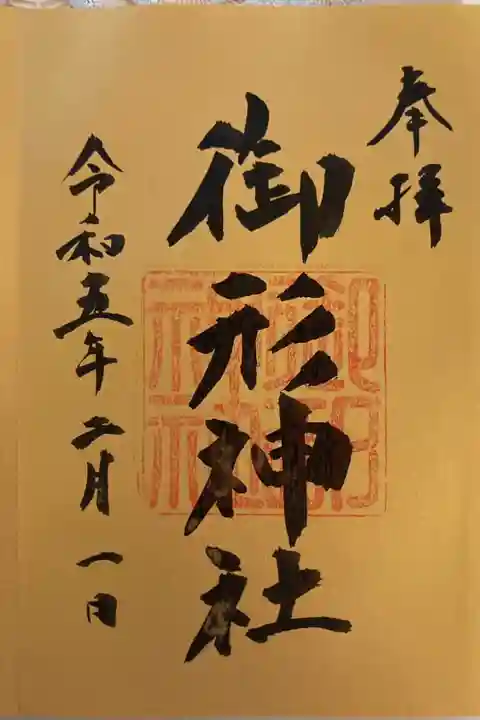 奉拝
御形神社
令和五年二月一日